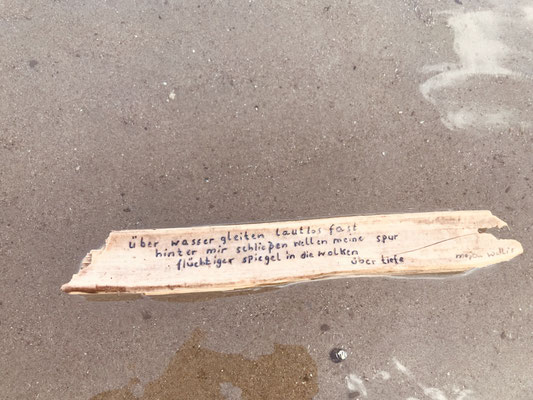 über wasser gleiten lautlos fast
hinter mir schließen wellen meine spur
flüchtiger spiegel in die wolken
über tiefe